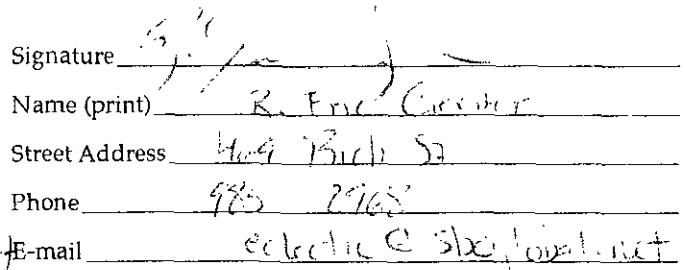 Signature
Name (print) R. Eric
Street Address Rich St
Phone 985 2968
E-mail eclectic @ sbcglobal.net